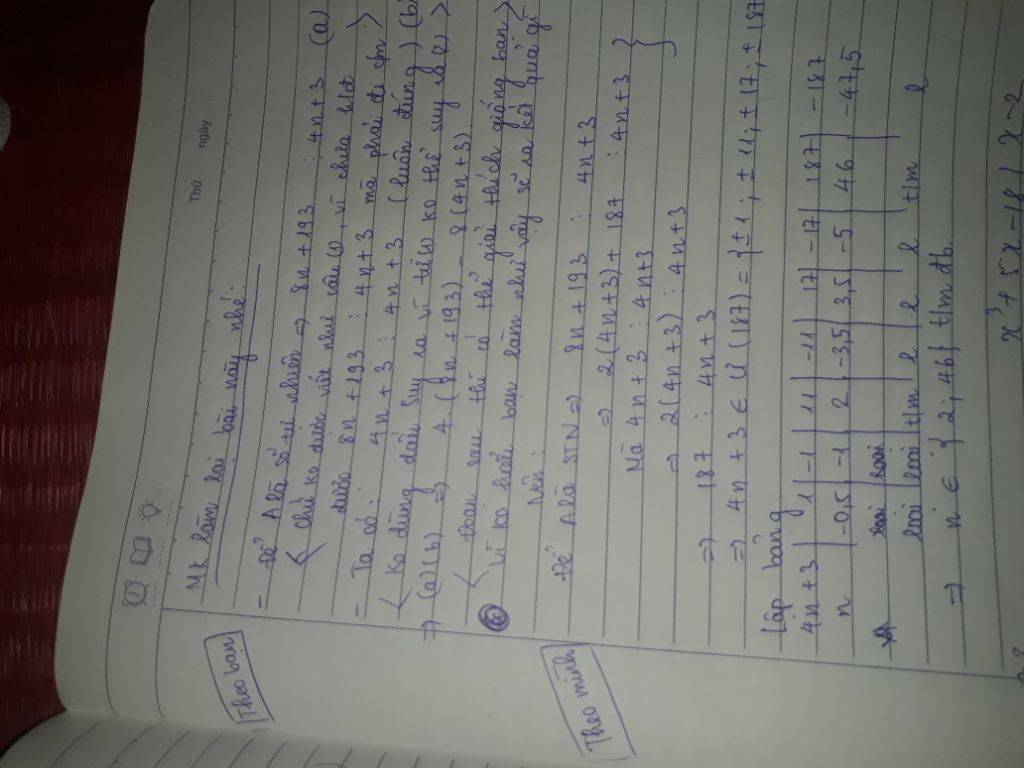 Thứ
ngày
Mk làm lại bài này nhé:
Theo bạn
- Để A là số tự nhiên => 8n + 193 ⋮ 4n + 3 (a)
< Chứ ko được viết như câu (1), vì chưa biết
được 8n + 193 ⋮ 4n + 3 mà phải đi cm >
- Ta có: 4n + 3 ⋮ 4n + 3 (luôn đúng) (b)
< Ko dùng dấu suy ra vì trên ko thể suy ra (2) >
=> (a)(b) => 4.(8n + 193) - 8(4n + 3)
< Đoạn sau thì có thể giải thích giống bạn >
Vì ko hiểu bạn làm như vậy sẽ ra kết quả gì
nên:
Theo mình
Để A là STN => 8n + 193 ⋮ 4n + 3
=> 2(4n + 3) + 187 ⋮ 4n + 3 }
Mà 4n + 3 ⋮ 4n + 3
=> 2(4n + 3) ⋮ 4n + 3
=> 187 ⋮ 4n + 3
=> 4n + 3 ∈ Ư(187) = { ± 1; ± 11; ± 17; ± 187
Lập bảng
4n + 3 | 1 | -1 | 11 | -11 | 17 | -17 | 187 | -187
n | -0,5 | -1 | 2 | -3,5 | 3,5 | -5 | 46 | -47,5
loại loại tlm l l l tlm l
=> n ∈ { 2; 46 } tlm đb.
x³ + 5x - 18 | x - 2